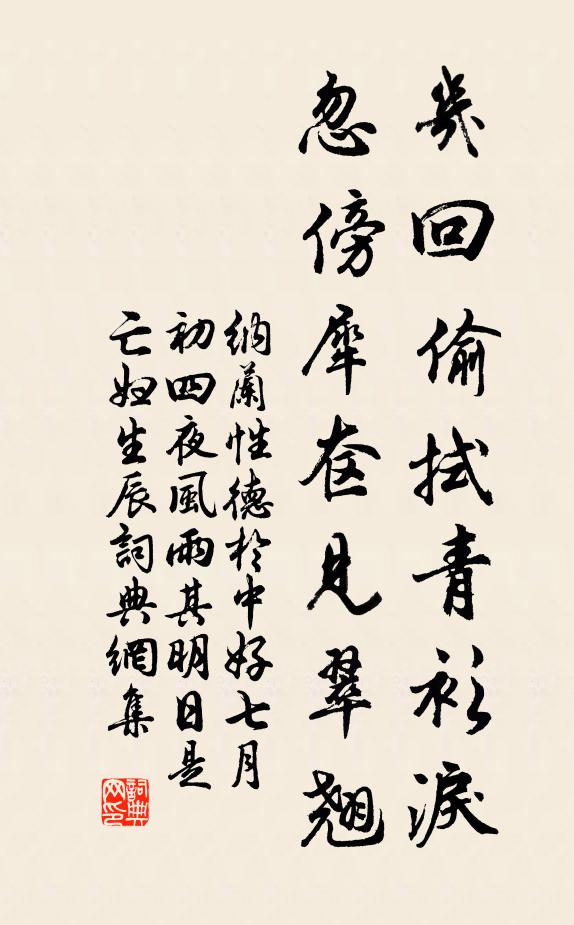 幾回偷拭青衫淚
忽傍犀奁見翠翹
納蘭性德於中好七月
初四夜風雨其明日是
亡婦生辰詞典網集
詞典网印